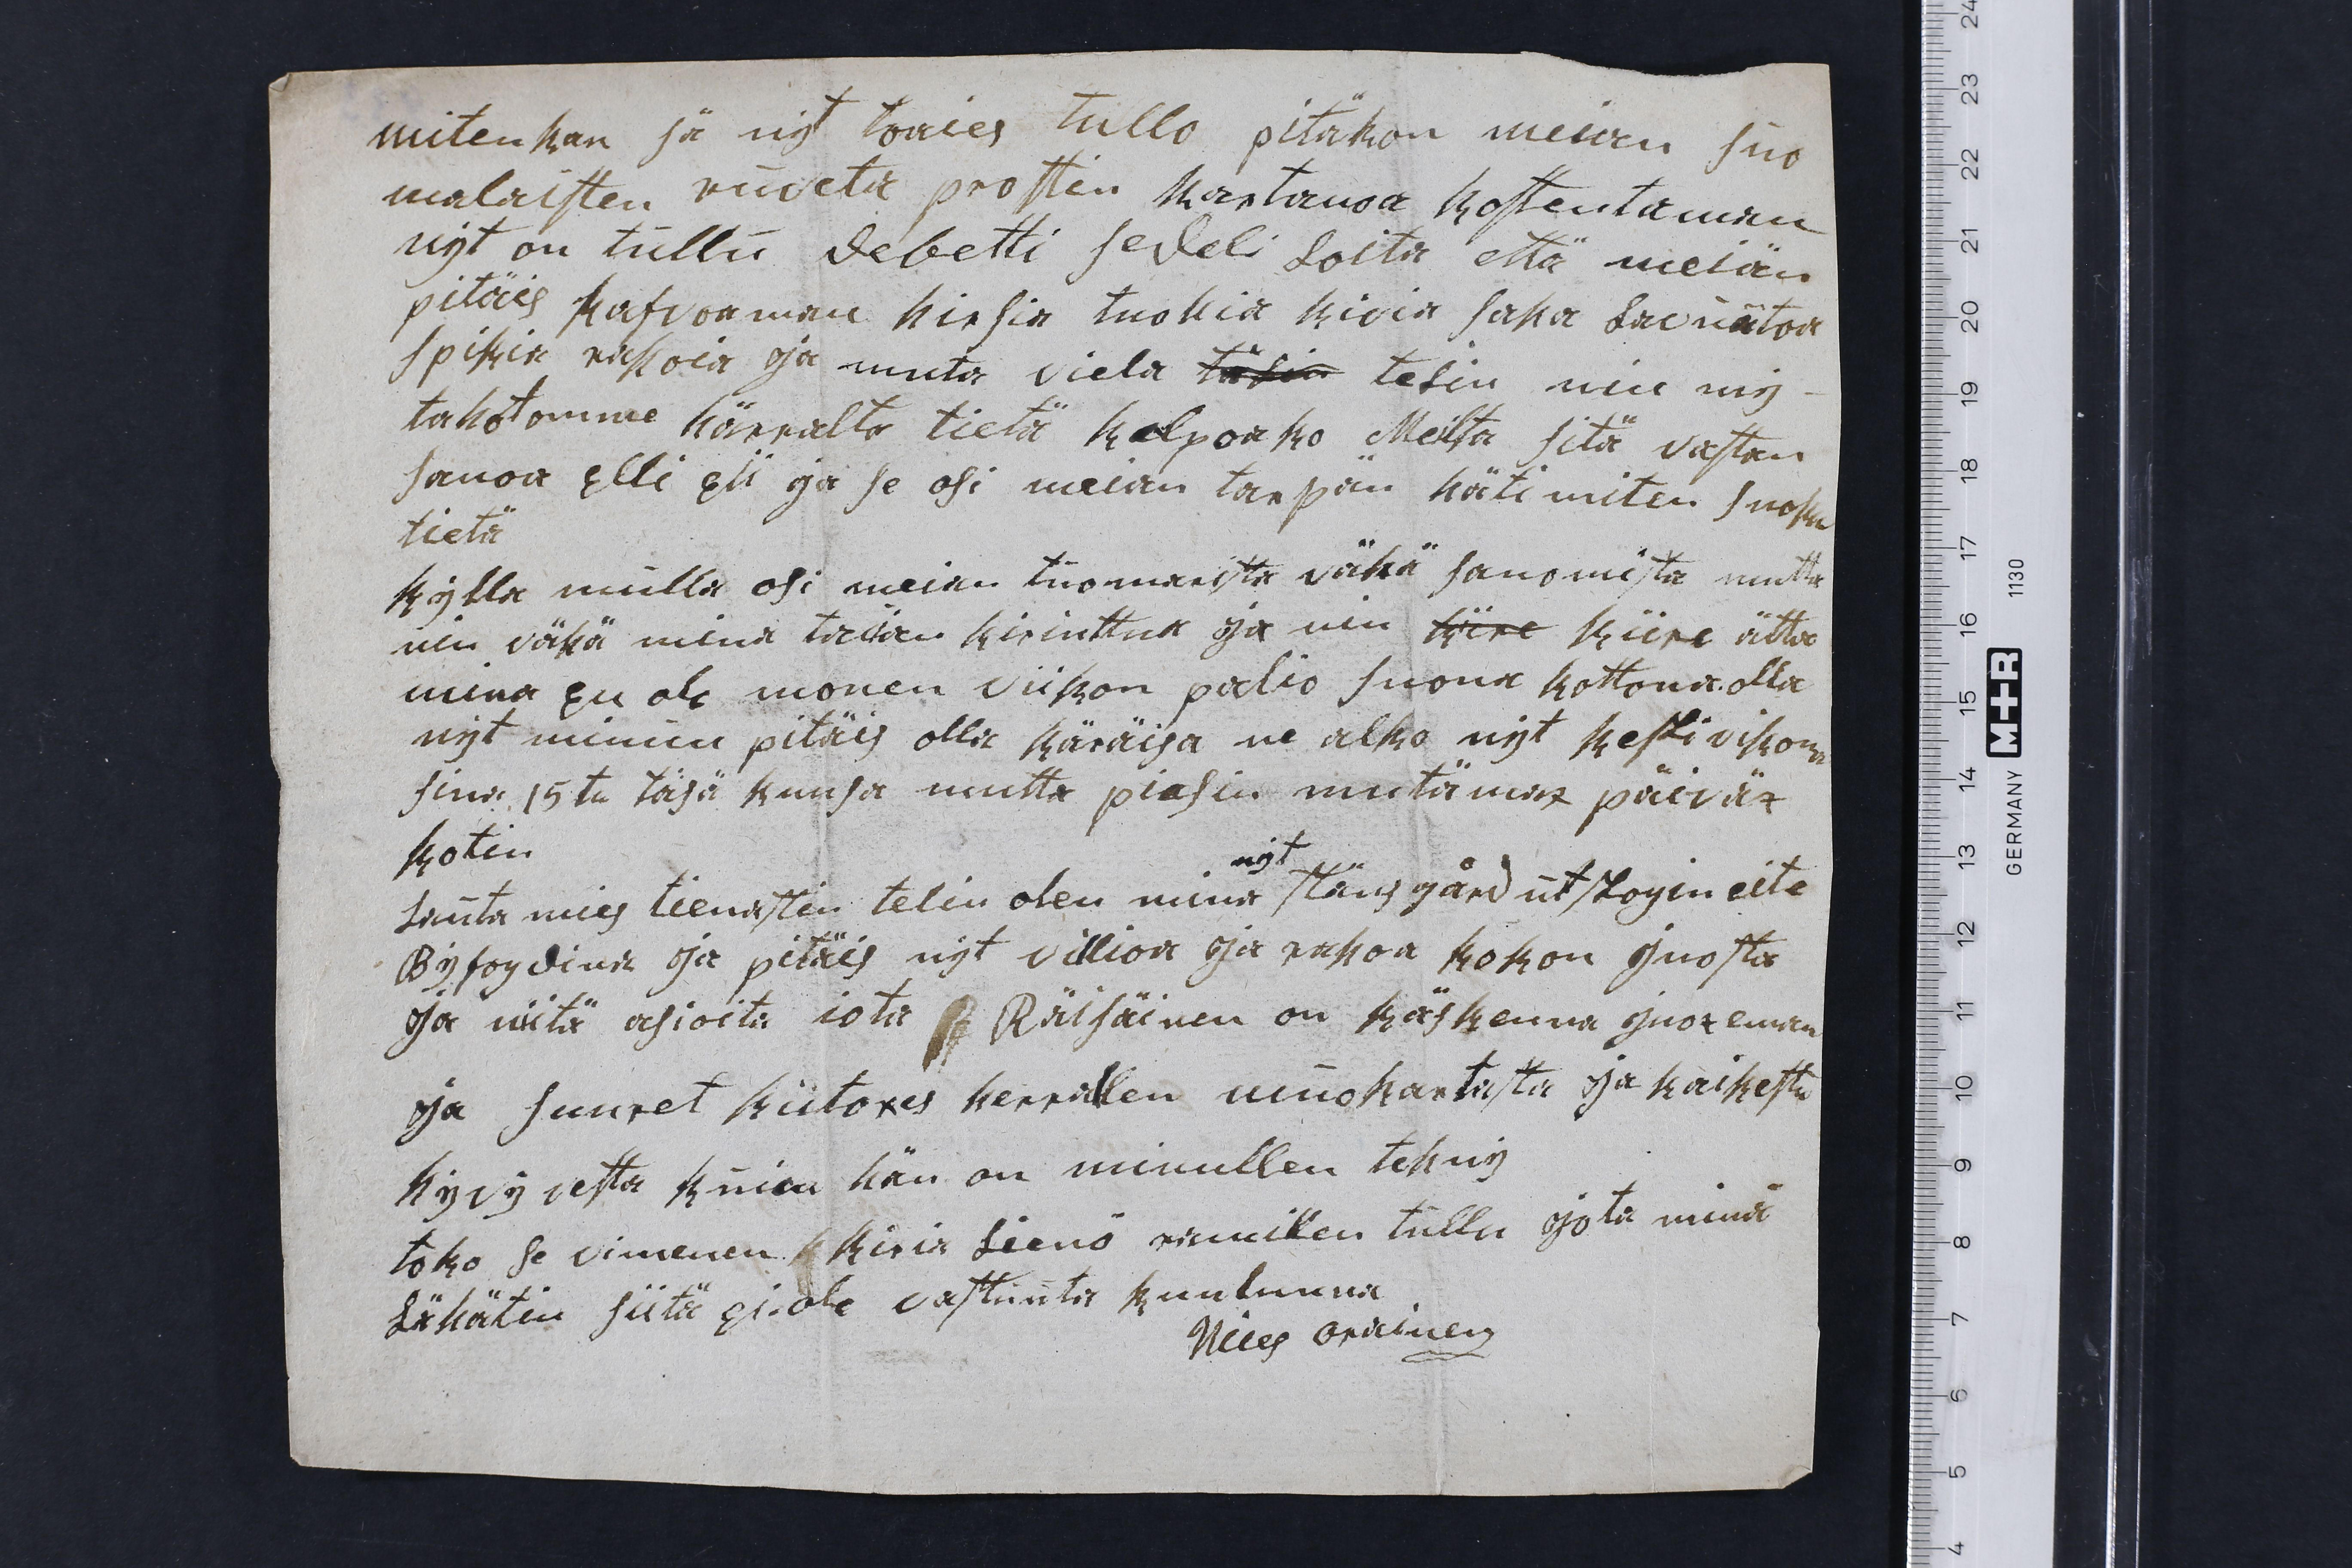 mitenkan sä nyt toaies tullo pitäkon meian suo
malaisten ruveta prostin kartanoa kostentaman
nyt on tullu debetti sedeli Loita että meiän
pitäis kasvoaman hirsia tuohia kivia saka Lavuatoa
spikia rahoia ja muta viela täsin tesin nin my-
tahotomme härralta tietä kelpoako Meilta sitä vastan
sanoa elli eii ja se osi meian tarpän häti miten suoka
tietä
kylla mulla osi meian tuomarista vähä sanomista mutta
nin vähä mina taian kirinttua ja nin kiire kiire ätta
mina en ole monen viikon palio suona kottona olla
nyt minun pitäis olla käräisa ne alko nyt keskivikona
sina 15ta täsä kuusa mutta piasin mutämax päiväx
kotin
Lauta mies tienastin telin olen mina nyt stäns gård utskogin eite
Byfogdina ja pitäis nyt villioa ja rahoa kokon juosta
ja niitä asioita iota Räisäinen on käskenna juoxeman
ja suuret kiitoxes herrallen nuohartasta ja kaikesta
hyvyvesta kuin hän on minullen tehny
toko se vimenen kiria Lieno ramillen tullu jota minä
Lähätin siitä ei ole vastuuta kuulunna
Niles orainen
24
23
22
21
20
19
18
17
16
15
14
13
12
11
10
9
8
7
6
5
4
1130
M+R
GERMANY